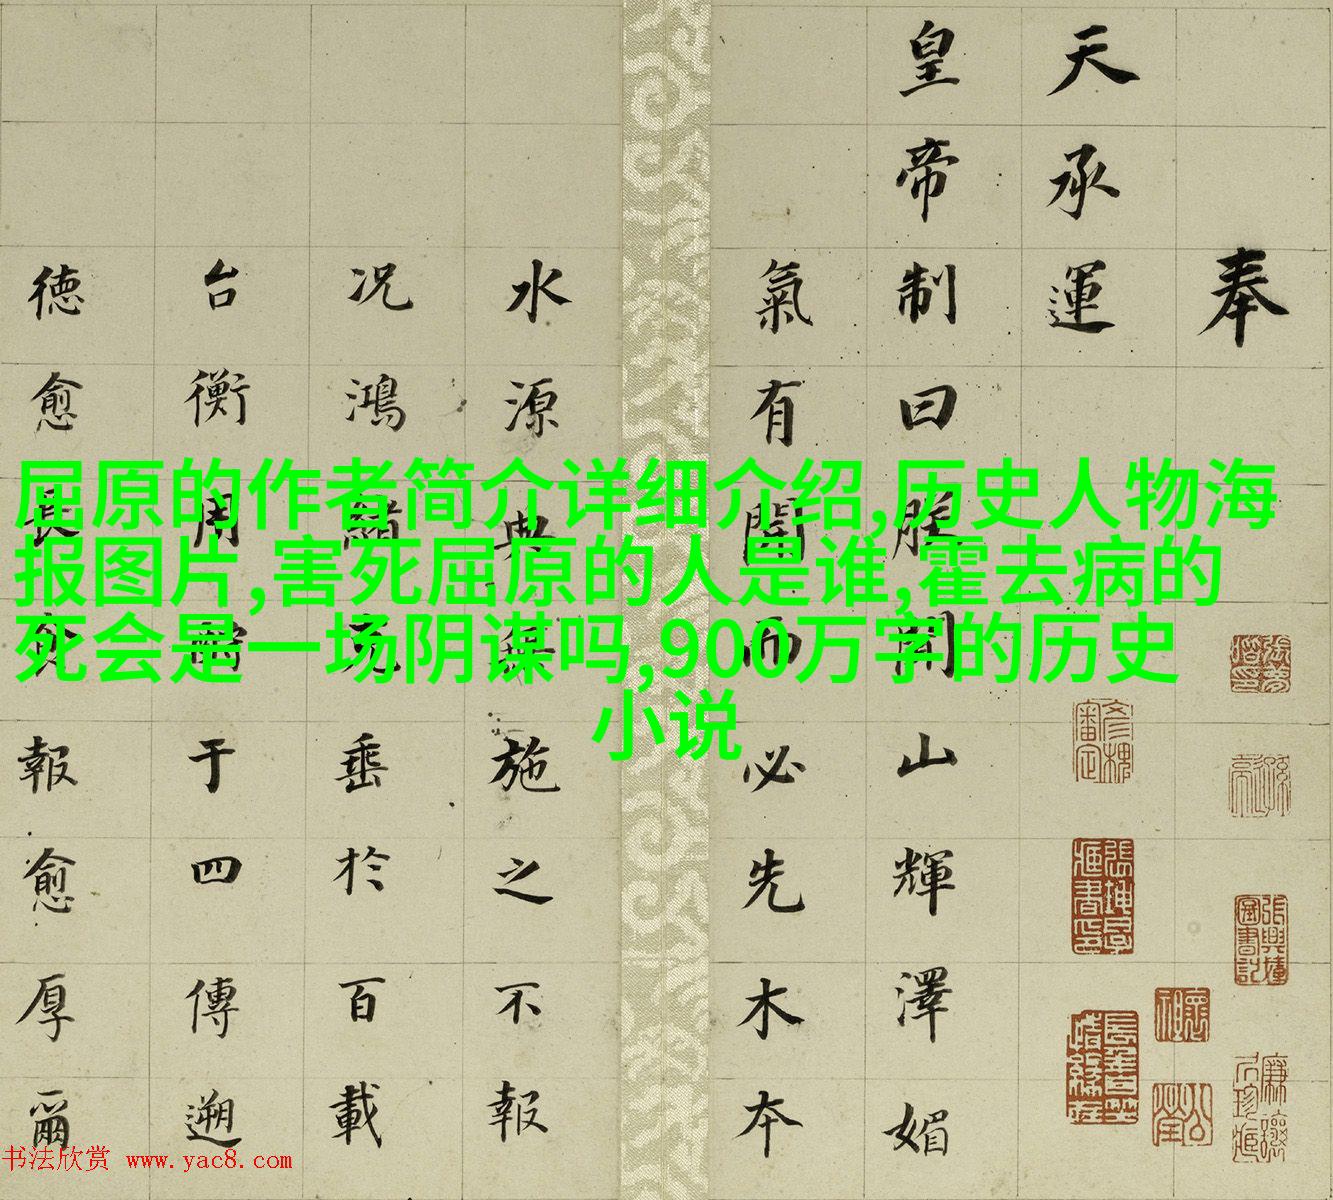 屈原的作者简介详细介绍,历史人物海
报图片,害死屈原的人是谁,霍去病的
死会是一场阴谋吗,900万字的历史
小说
奉
天承運
皇帝制曰朕聞山輝澤媚
氣有開而必先木本
水源典無施之不報
况鴻緒垂於百載
台衡周于四傳遡
德愈長報愈厚爾
书法欣赏 www.yac8.com